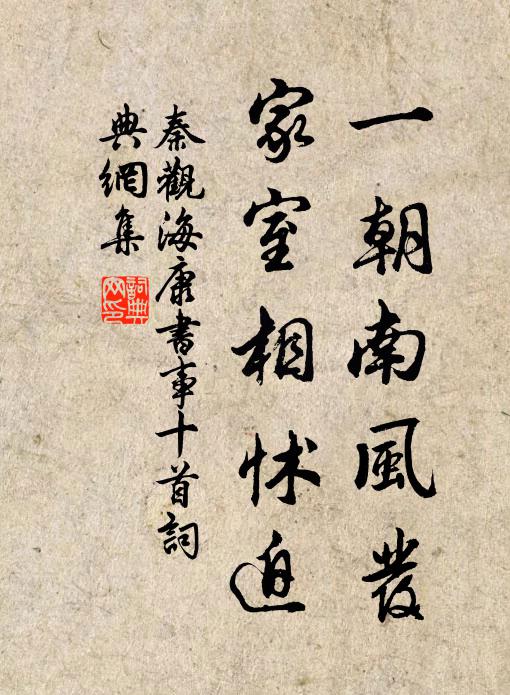 一朝南風發
家室相怵迫
秦觀海康書事十首詞
典網集
詞典網印